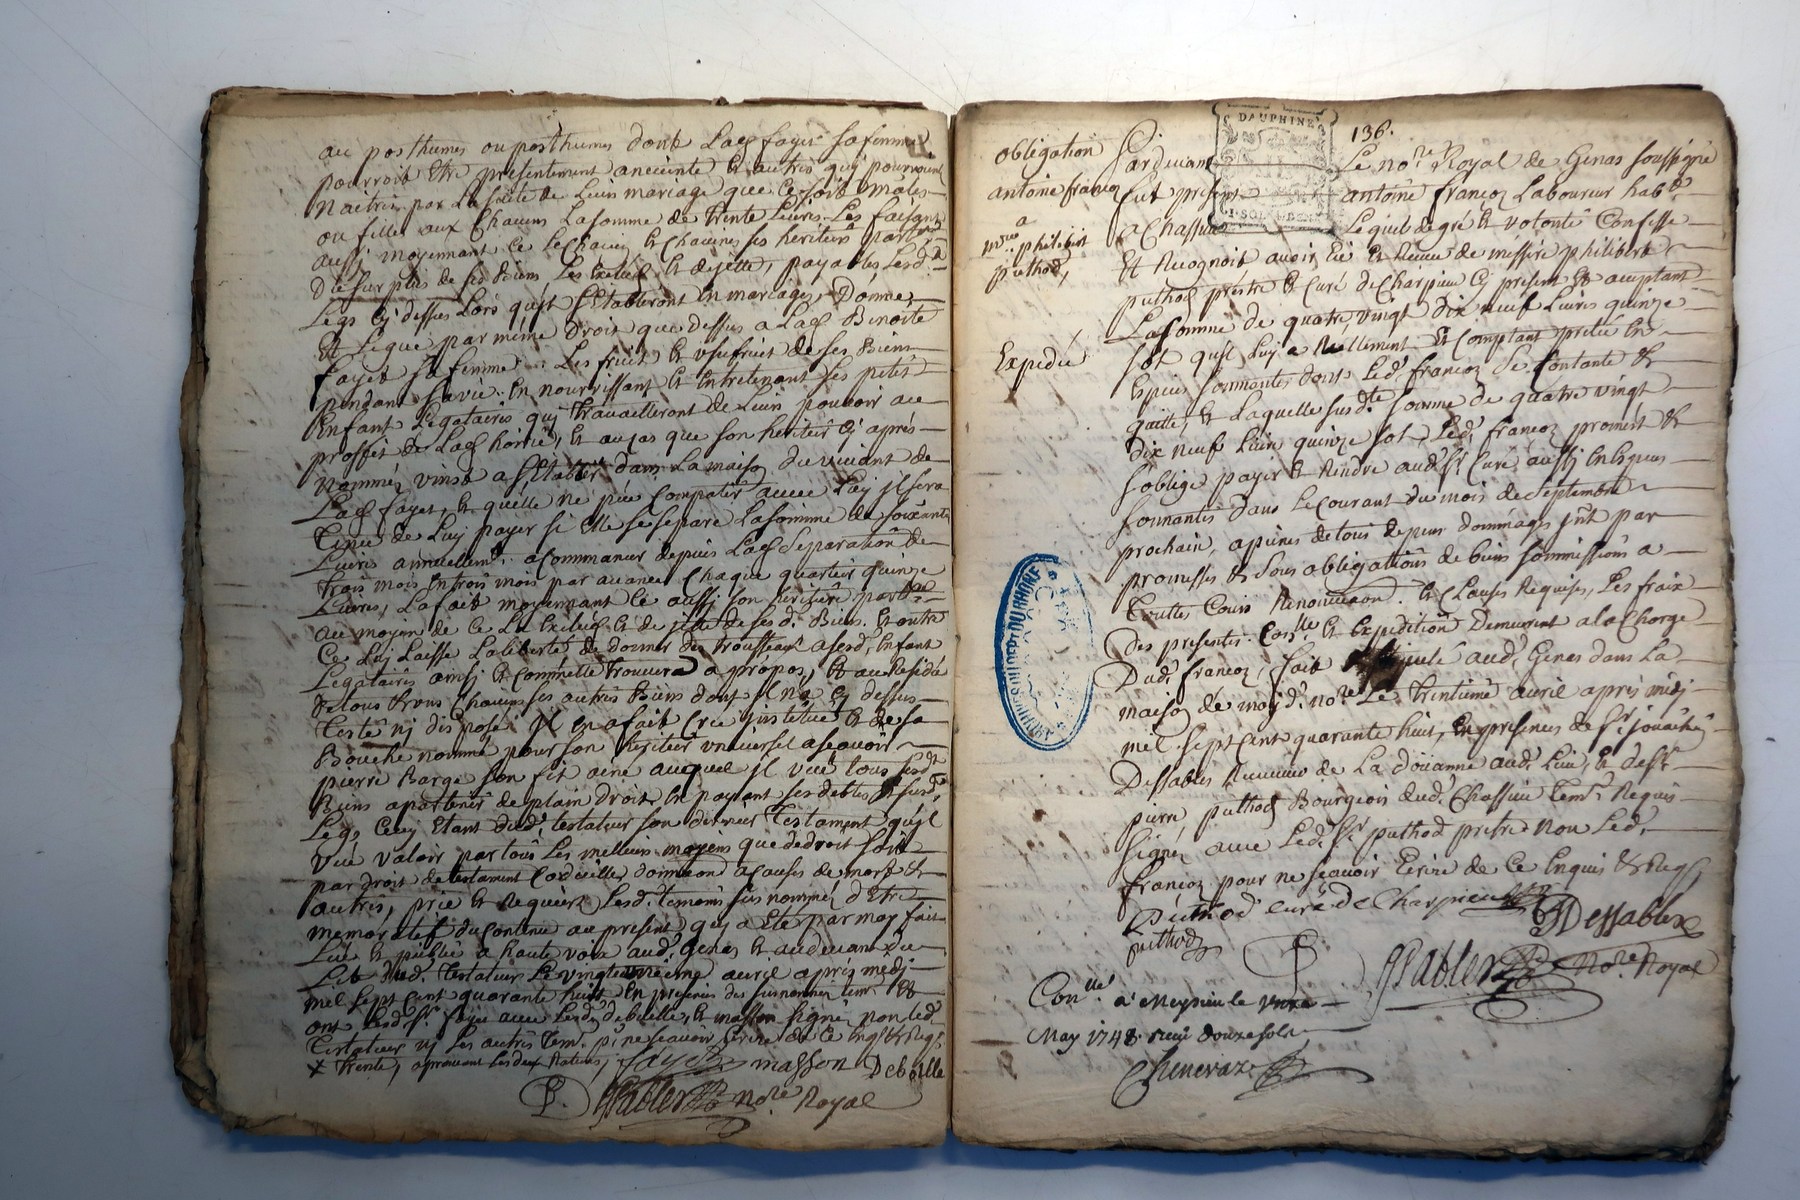 au posthumes ou posthumes dont Lad fayet sa femme
pourroit Etre presentement anceinte Et autres qui pourront
Naitre par La suite de Leur mariage que ce soit males
ou filles aux Chacuns La somme de trente Livres Les faisant
aussy moyennant ce Chacun Et Chacunes ses heritiers part
Du surplus de ses Biens Les Exclus Et dejette, payables Lesd
Legs Cy dessus Lors quils Setabliront En mariage, Donne
Et Legue par même droit que dessus a Lad Benoite
fayet sa femme Les fruits Et usufruit de ses Biens
pendant sa vie En nourrissant Et Entretenant ses petits
Enfant Legataires qui travailleront de Leur pouvoir au
proffit de Lad hoirie, Et au cas que son heritier Cy après
nommé, vint a Setablir dans La maison du vivant de
Lad fayet, Et quelle ne put Compatir avec Luy il sera
Tenu de Luy payer si Elle se separe La somme de soixante
Livres annuellemt. a Commancer depuis Lad Separation de
trois mois En trois mois par avance Chaque quartier quinze
Livres, La fait moyennant Ce aussy son heritiere part
au moyen de ce La Exclus Et de jette de sesd. Biens. Et outre
Ce Luy Laisse La liberté de donner des trousseaux a sesd. Enfant
Legataires ainsy Et Comme Elle trouvera a propos, Et au Residu
De tous Et uns Chacuns ses autres Biens dont il na Cy dessus
Testé ny disposé il En a fait Cree institué Et de sa
Bouche nommé pour son heritier universel ascavoir
pierre Barge son fils ainé auquel il veut tous sesd
Biens apartenir de plain droit En payant ses debtes Et susd.
Legs Cecy Etant dud. testateur son dernier Testament quil
veut valoir par tous Les meilleurs moyens que de droit soit
par droit de testament Codicille, donnation a Causes de mort Et
autres, prie Et Requiert Lesd. temoins sus nommés d'Etre
memoratif du Contenu au present qui a Eté par moy fait
Lue Et publié a haute voix aud. Genas Et au devant du
Lit dud. testateur Le vingt avril après midy
mil sept cent quarante huit En presences des susnommés tem. Et
ont Lesd. Sr. fayet avec Lesd. debielle, Et masson signé non led.
Testateur ny Les autres Tem. p. ne scavoir Ecrire de Ce Enq. Et Req.
x trente, aprouvant Lesdeux Ratures, fayet masson Debielle
Pabler Nore Royal
DAUPHINÉ
136.
obligation
antoine francoz
a
mre. philibert
puthod,
Expedié
Pardevant Le nore Royal de Genas soussigné
fut present antoine francoz Laboureur habt.
a Chassieu Lequel de gré Et volonté Confesse
Et Recognoit avoir Eu Et Receu de messire philibert
puthod prestre Et Curé de Charpieu Cy present Et aceptant
La somme de quatre vingt dix neuf Livres quinze
sol quil Luy a Reellement Et Comptant preté En
Especes sonnantes dont Led. francoz Se Contante Et
quitte, Et Laquelle susdte somme de quatre vingt
dix neuf Livres quinze sol, Led. francoz promest Et
soblige payer Et Rendre aud. Sr. Curé aussy En Especes
sonnantes dans Le Courant du mois de Septembre
prochain, a peines de tous depens dommages Int. par
promesses Et Sous obligations de biens sommissions a
Toutes Cours Renonciaon. Et Clauses Requises, Les fraix
Des presentes. Conlle. Et Expedition Demeurent a la Charge
Dud. francoz, fait aud. Genas dans La
maison de moyd. nore Le trentieme avril après midy
mil sept cent quarante huit, En presences de Sr. jouachin
Dessables Receveur de La doüanne aud. Lieu, Et de Sr.
pierre puthod Bourgeois dud. Chassieu Tem. Requis
signés avec Led. Sr. puthod pretre Non Led.
francoz pour ne scavoir Ecrire de Ce Enquis Et Req.
Puthod curé de Charpieu Dessables
puthod
Pabler Nore. Royal
Conlle. a Meysieu le
May 1748. reçu douze sols
Cheneraz